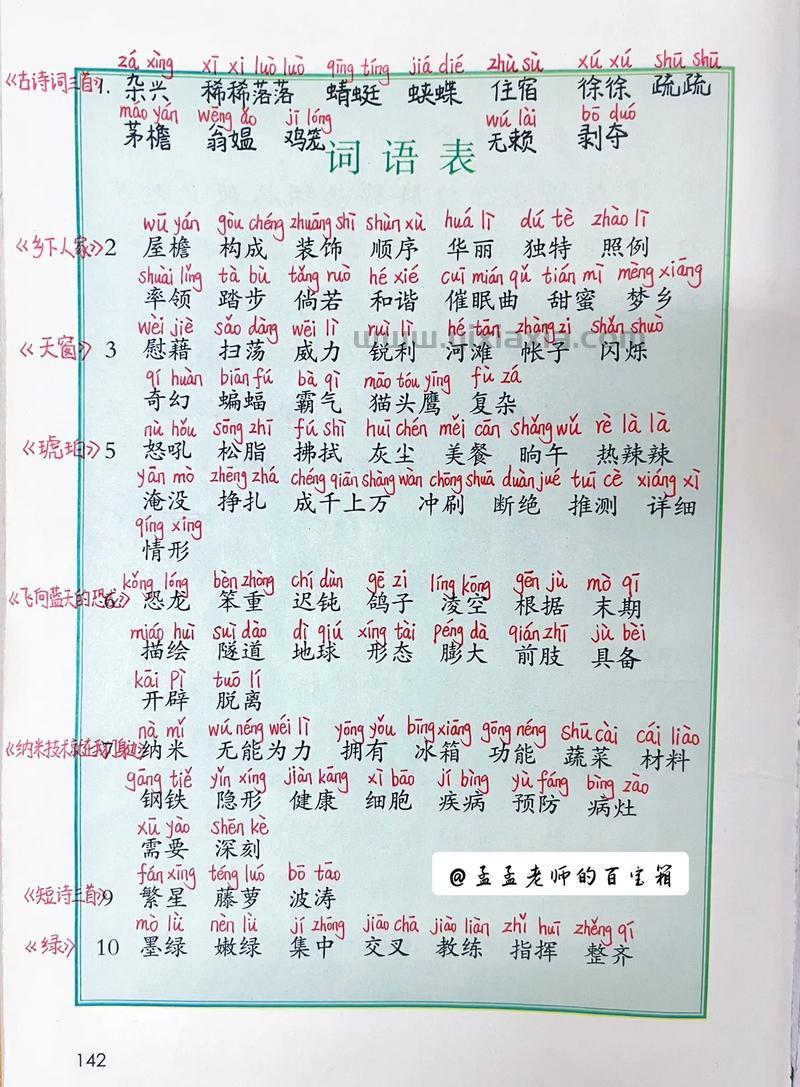 zá xìng xī xi luò luò qīng tíng jiá dié zhù sù xú xú shū shū
《古诗词三首》1. 杂兴 稀稀落落 蜻蜓 蛱蝶 住宿 徐徐 疏疏
máo yán wēng ǎo jī lóng wú lài bō duó
茅檐 翁媪 鸡笼 无赖 剥夺
词语表
wū yán gòu chéng zhuāng shì shùn xù huá lì dú tè zhào lì
《乡下人家》2 屋檐 构成 装饰 顺序 华丽 独特 照例
shuài lǐng tà bù tǎng ruò hé xié cuī mián qǔ tián mì mèng xiāng
率领 踏步 倘若 和谐 催眠曲 甜蜜 梦乡
wèi jiè sǎo dàng wēi lì ruì lì hé tān zhàng zi shǎn shuò
《天窗》3 慰藉 扫荡 威力 锐利 河滩 帐子 闪烁
qí huàn biān fú bà qì māo tóu yīng fù zá
奇幻 蝙蝠 霸气 猫头鹰 复杂
nù hǒu sōng zhī fú shì huī chén měi cān shǎng wǔ rè là là
《琥珀》5 怒吼 松脂 拂拭 灰尘 美餐 晌午 热辣辣
yān mò zhēng zhá chéng qiān shàng wàn chōng shuā duàn jué tuī cè xiáng xì
淹没 挣扎 成千上万 冲刷 断绝 推测 详细
qíng xíng
情形
kǒng lóng bèn zhòng chí dùn gē zi líng kōng gēn jù mò qī
《飞向蓝天的恐龙》6 恐龙 笨重 迟钝 鸽子 凌空 根据 末期
miáo huì suì dào dì qiú xíng tài péng dà qián zhī jù bèi
描绘 隧道 地球 形态 膨大 前肢 具备
kāi pì tuō lí
开辟 脱离
nà mǐ wú néng wéi lì yōng yǒu bīng xiāng gōng néng shū cài cái liào
《纳米技术就在我们身边》7 纳米 无能为力 拥有 冰箱 功能 蔬菜 材料
gāng tiě yǐn xíng jiàn kāng xì bāo jí bìng yù fáng bìng zào
钢铁 隐形 健康 细胞 疾病 预防 病灶
xū yào shēn kè
需要 深刻
@孟孟老师的百宝箱
fán xīng téng luó bō tāo
《短诗三首》9 繁星 藤萝 波涛
mò lǜ nèn lǜ jí zhōng jiāo chā jiào liàn zhǐ huī zhěng qí
《绿》10 墨绿 嫩绿 集中 交叉 教练 指挥 整齐
142